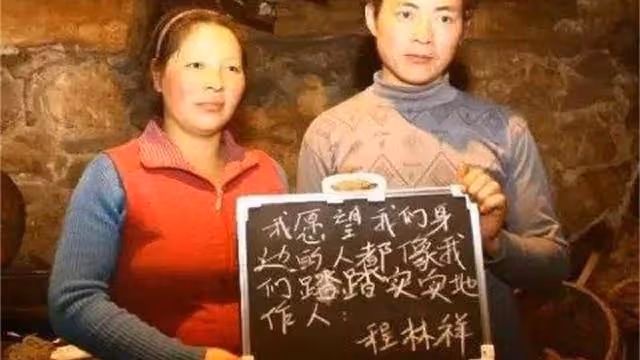 我愿望我们身
边的人都像我
们踏踏实实地
作人：
程林祥